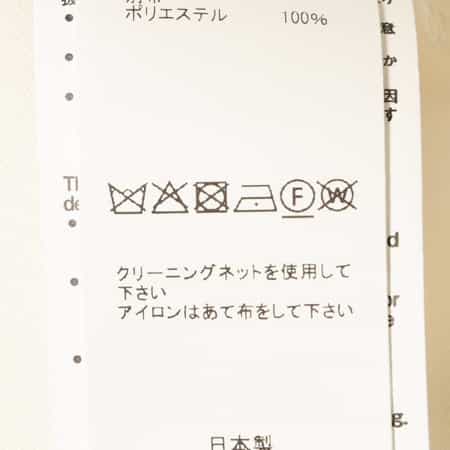 ポリエステル 100%
意
か
因
す
Th
de
F W
クリーニングネットを使用して
下さい
アイロンはあて布をして下さい
d
or
e
g.
日本製